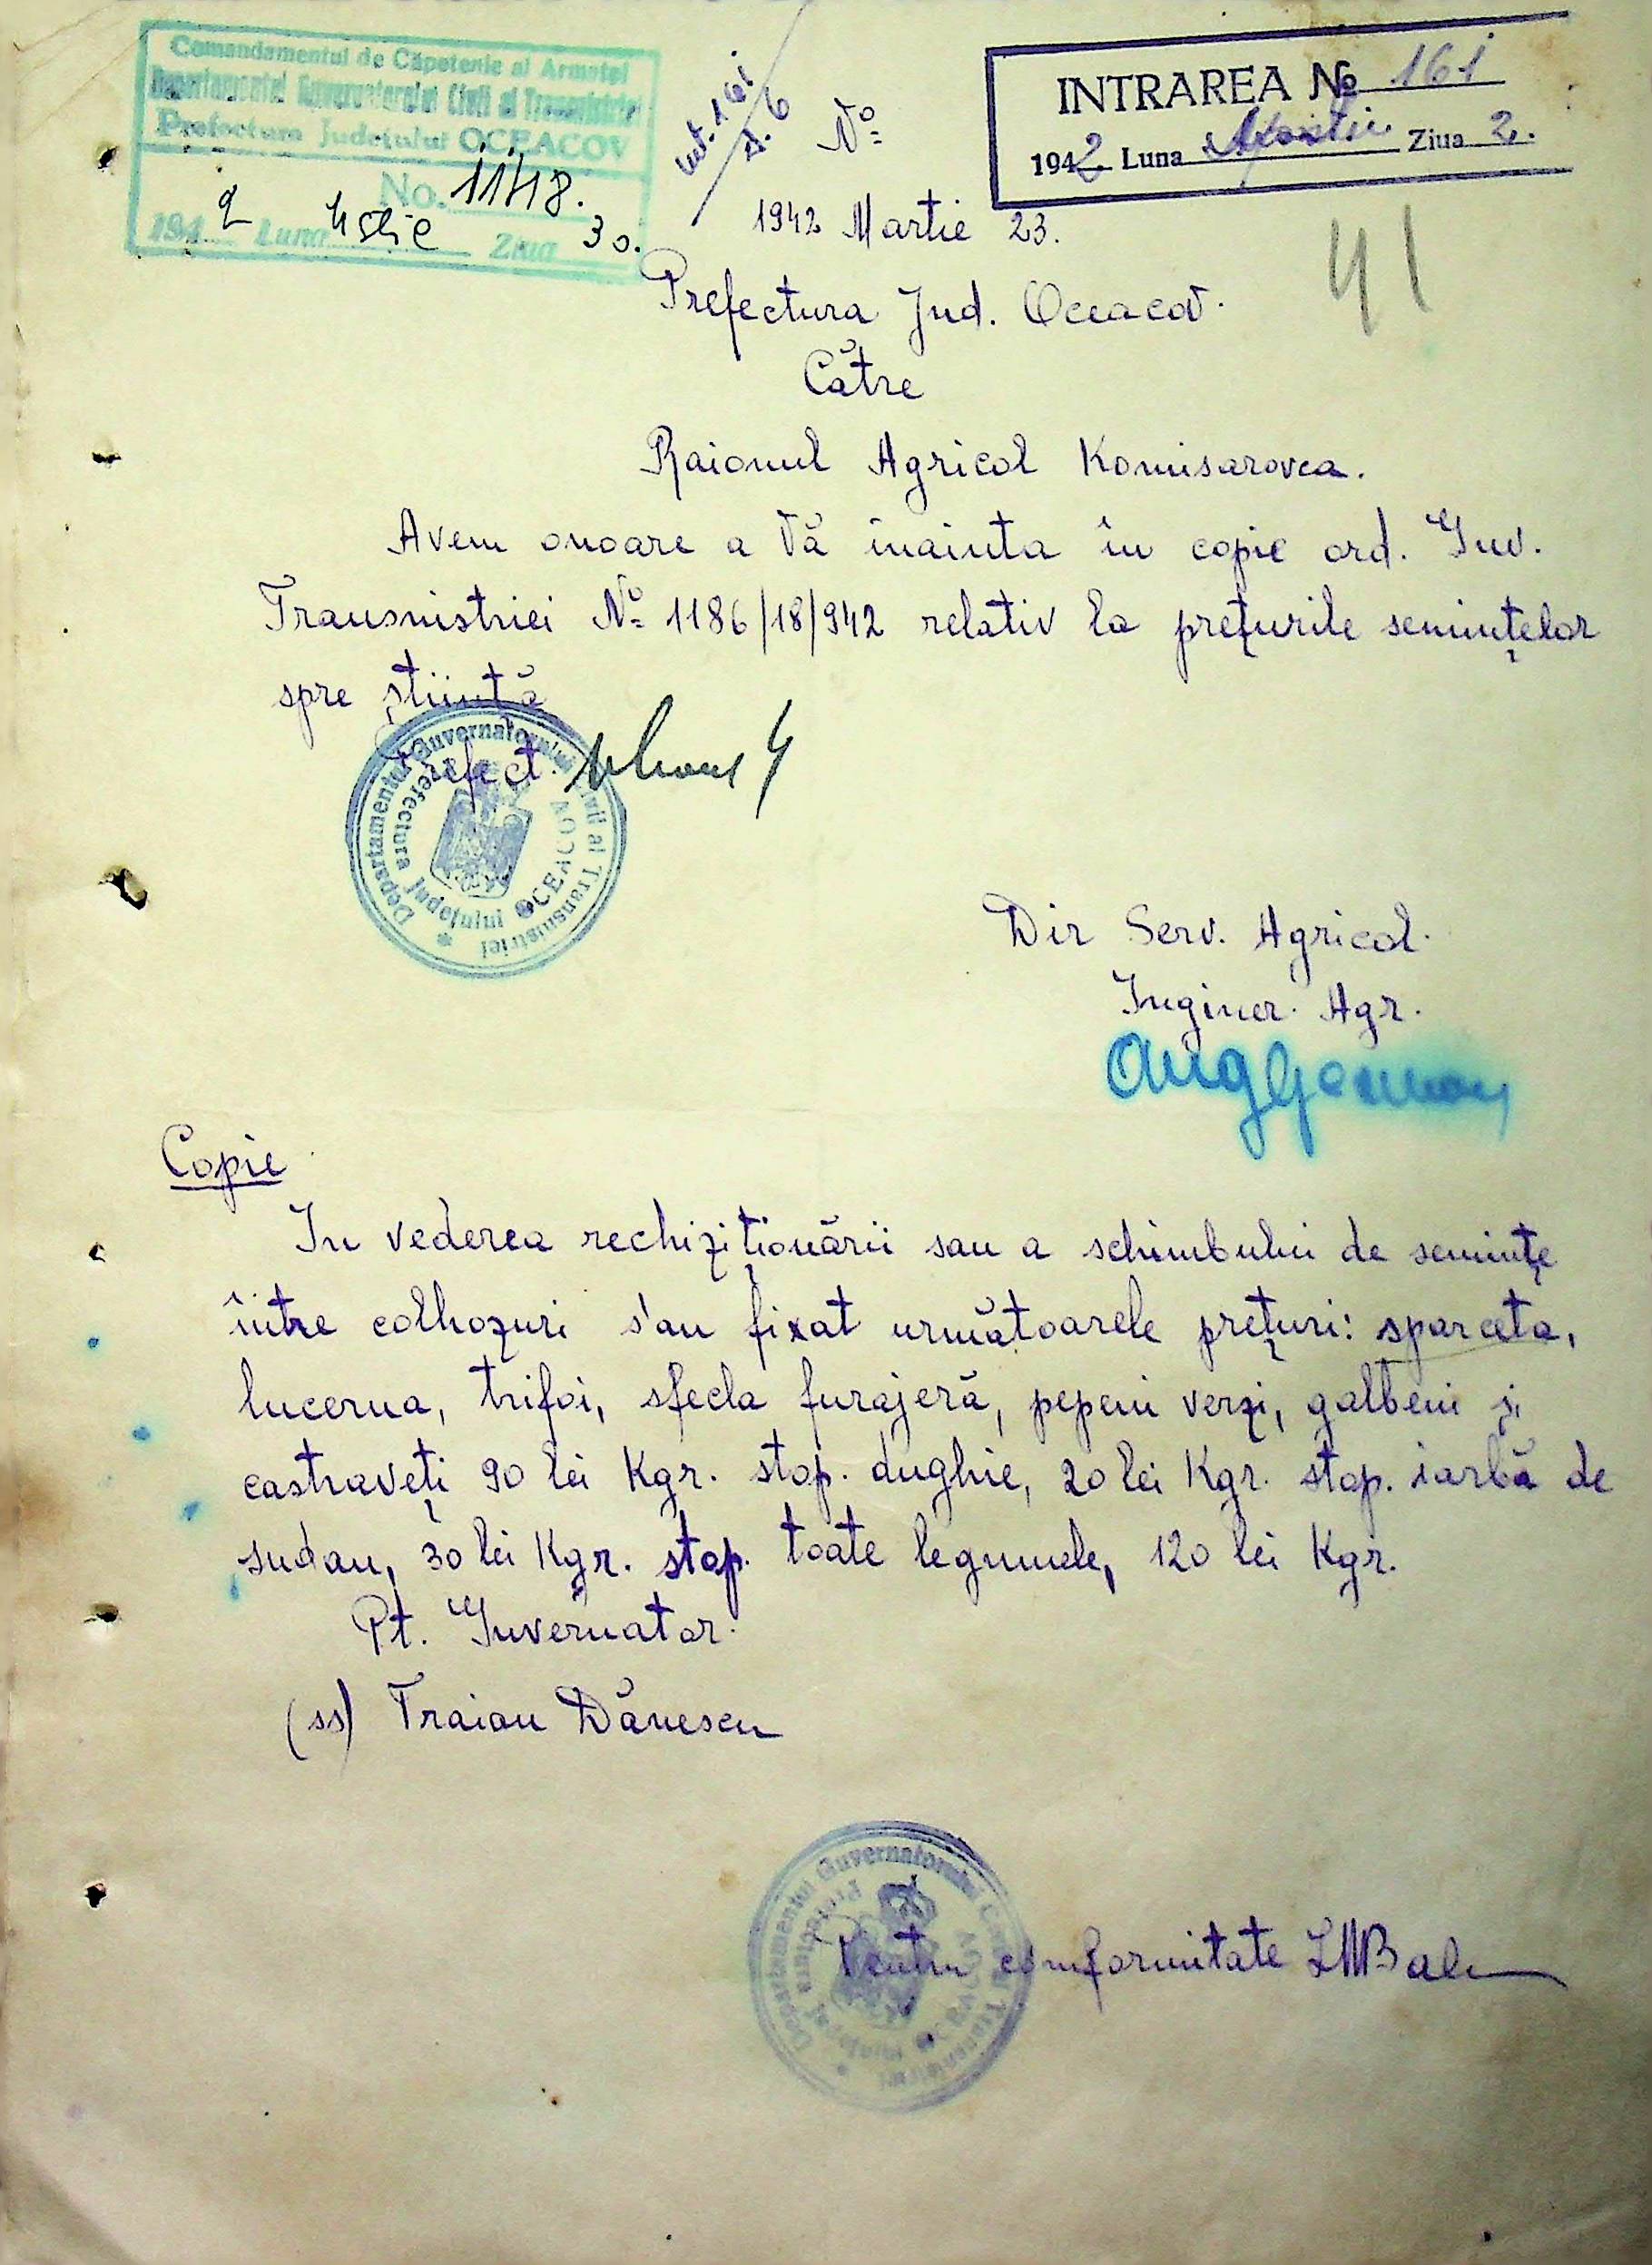 Comandamentul de Căpetenie al Armatei
Departamentul Guvernatorului Civil al Transnistriei
Prefectura Județului OCEACOV
No. 1148.
1942 Luna Ziua 30.
INTRAREA № 161
1942 Luna Ziua 2.
Nº
1942 Martie 23.
41
Prefectura Jud. Oceacov.
Către
Raionul Agricol Komisarovca.
Avem onoare a Vă înainta în copie ord. Guv.
Transnistriei Nº 1186/18/942 relativ la prețurile semințelor
spre știință
Prefect.
Departamentul Guvernatorului Civil al Transnistriei
Prefectura Județului OCEACOV
Dir Serv. Agricol.
Inginer. Agr.
Copie
In vederea rechiziționării sau a schimbului de semințe
între colhozuri s'au fixat următoarele prețuri: sparceta,
lucerna, trifoi, sfecla furajeră, pepeni verzi, galbeni și
castraveți 90 lei Kgr. stop. dughie, 20 lei Kgr. stop. iarbă de
sudan, 30 lei Kgr. stop. toate legumele, 120 lei Kgr.
Pt. Guvernator.
(ss) Traian Dănescu
Departamentul Guvernatorului Civil al Transnistriei
Prefectura Județului OCEACOV
Pentru comformitate